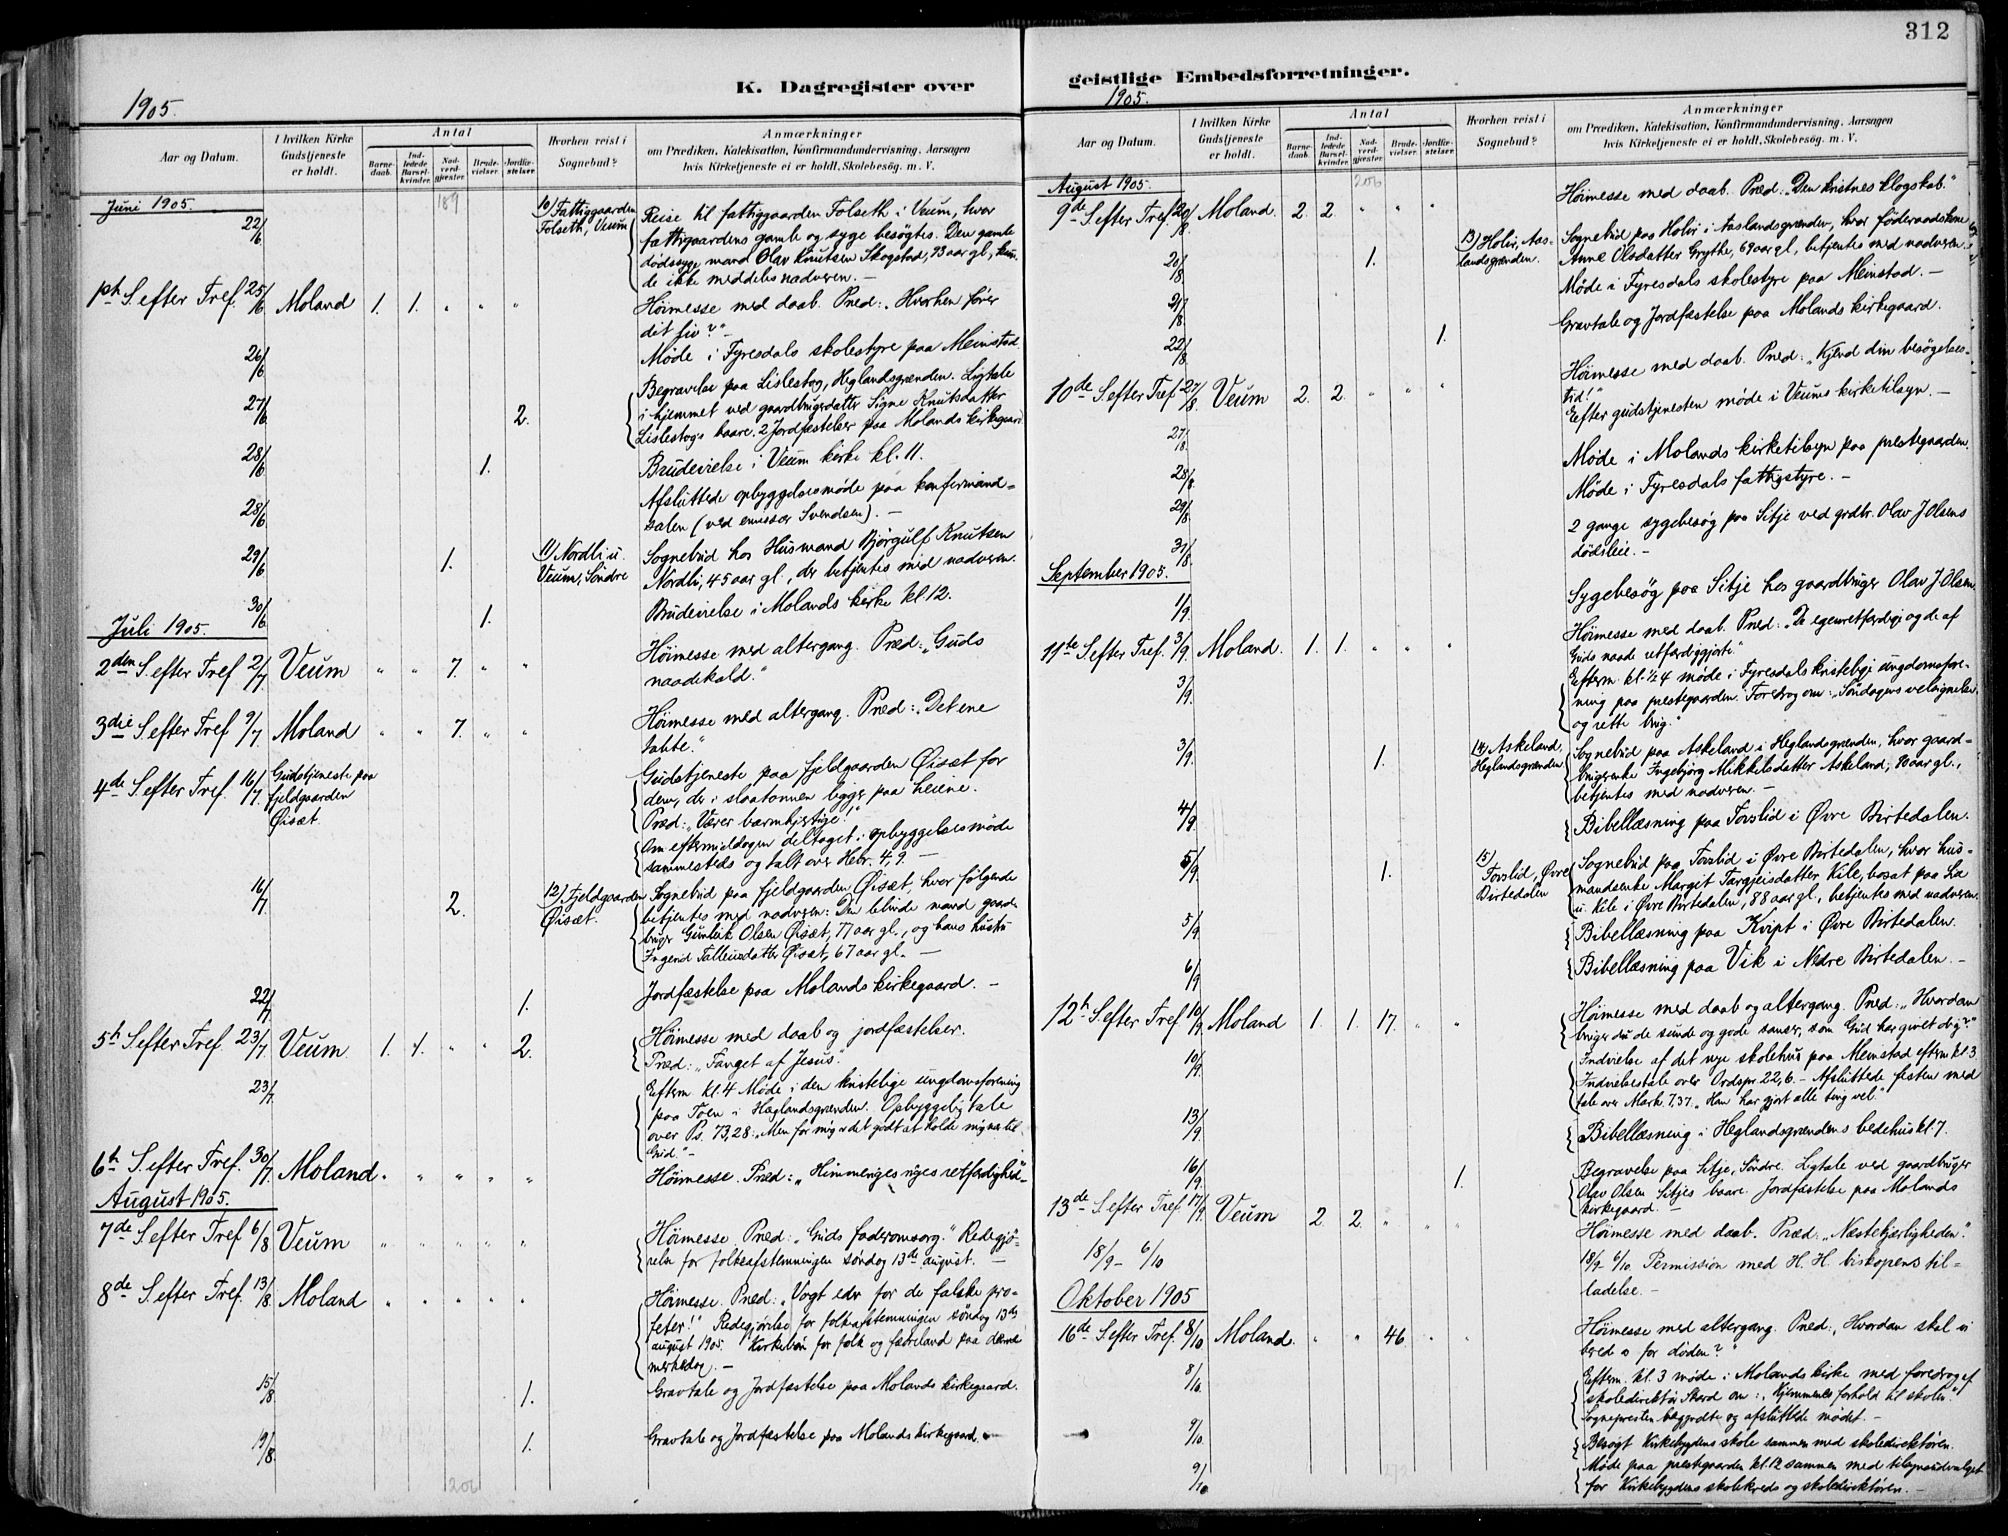 312
K. Dagregister over
1905.
Aar og Datum.
I hvilken Kirke Gudstjeneste er holdt.
Antal
Barnedaab.
Indledede Barselkvinder.
Nadverdgjester.
Brudevielser.
Jordfæstelser.
Hvorhen reist i Sognebud?
Anmærkninger
om Prædiken, Katekisation, Konfirmandundervisning, Aarsagen
hvis Kirketjeneste ei er holdt, Skolebesøg. m. V.
189
Juni 1905.
22/6 10) Fattiggaarden Folseth, Veum Reise til fattiggaarden Folseth i Veum, hvor
fattiggaardens gamle og syge besøgtes. Den gamle
dødssyge mand Olav Knutsen Skogstad, 93 aar gl., kun-
de ikke meddeles nadveren. –
S. efter Tref. 25/6 Moland 1. 1. " " " Høimesse med daab. Præd.: "Hvorhen fører
dit liv?" –
26/6 Møde i Fyresdals skolestyre paa Meinstad
27/6 2. Begravelse paa Lislestog, Heglandsgrænden. Ligtale
i hjemmet ved gaardbrugerdatter Signe Knutsdatter
Lislestogs baare. 2 Jordfæstelser paa Molands kirkegaard
28/6 1. Brudevielse i Veum kirke kl. 11.
28/6 Afsluttede opbyggelsesmøde paa konfirmand-
salen (ved emissær Svendsen). –
29/6 1. 11) Nordli u. Veum, Söndre Sognebud hos Husmand Bjørgulf Knutsen
Nordli, 45 aar gl., der betjentes med nadveren.
30/6 1. Brudevielse i Molands kirke kl 12.
Juli 1905.
2den S. efter Tref 2/7 Veum " " 7. " " Høimesse med altergang. Præd.: "Guds
naadekald."
3die S. efter Tref 9/7 Moland " " 7. " " Høimesse med altergang. Præd.: "Det ene
tabte."
4de S. efter Tref. 16/7 Gudstjeneste paa fjeldgaarden Øisæt. Gudstjeneste paa fjeldgaarden Øisæt for
dem, der i slaatonnen ligge paa heiene.
Præd.: "Værer barmhjertige!"
Om eftermiddagen deltaget i opbyggelsesmøde
sammesteds og talt over Hebr. 4, 9. –
16/7 2. 12) Fjeldgaarden Øisæt. Sognebud paa fjeldgaarden Øisæt, hvor følgende
betjentes med nadveren: Den blinde mand gaard-
bruger Gunleik Olsen Øisæt, 77 aar gl., og hans hustru
Ingerid Talleivsdatter Øisæt, 67 aar gl. –
22/7 1. Jordfæstelse paa Molands kirkegaard. –
5te S. efter Tref. 23/7 Veum. 1. 1. " " 2. Høimesse med daab og jordfæstelser.
Præd.: "Fanget af Jesus".
23/7 Efterm kl. 4 Møde i den kristelige ungdomsforening
paa Toen i Heglandsgrænden. Opbyggelig tale
over Ps. 73, 28: "Men for mig er det godt at holde mig nær til
Gud." –
6te S. efter Tref. 30/7 Moland " " " " " Høimesse. Præd.: "Himmeriges riges retfærdighed" –
August 1905.
7de S. efter Tref 6/8 Veum " " " " " Høimesse. Præd.: "Guds faderomsorg." Redegjö-
relse for folkeafstemningen søndag 13de august. –
8de S. efter Tref. 13/8 Moland " " " " " Høimesse. Præd.: "Vogt eder for de falske pro-
feter!" Redegjörelse for folkeafstemningen söndag 13de
august 1905. Kirkebön for folk og fædreland paa denne
merkedag. –
15/8 1. Gravtale og Jordfæstelse paa Molands kirkegaard.
19/8 1. Gravtale og Jordfæstelse paa Molands kirkegaard.
206
geistlige Embedsforretninger.
1905.
Aar og Datum.
I hvilken Kirke Gudstjeneste er holdt.
Antal
Barnedaab.
Indledede Barselkvinder.
Nadverdgjester.
Brudevielser.
Jordfæstelser.
Hvorhen reist i Sognebud?
Anmærkninger
om Prædiken, Katekisation, Konfirmandundervisning, Aarsagen
hvis Kirketjeneste ei er holdt, Skolebesøg. m. V.
206
August 1905.
9de S. efter Tref. 20/8 Moland. 2. 2. " " " Höimesse med daab. Præd.: "Den kristnes klogskab."
20/8 1. 13) Holir, Aaslandsgrænden. Sognebud paa Holir i Aaslandsgrænden, hvor föderaadskone
Anne Olsdatter Grythe, 69 aar gl., betjentes med nadveren.
21/8 Møde i Fyresdals skolestyre paa Meinstad. –
22/8 1. Gravtale og Jordfæstelse paa Molands kirkegaard.
10de S. efter Tref 27/8 Veum 2. 2. " " Höimesse med daab. Præd.: "Kjend din besøgelses-
tid!"
27/8 Efter gudstjenesten møde i Veums kirketilsyn. –
28/8 Møde i Molands kirketilsyn paa prestegaarden.
29/8 Møde i Fyresdals fattigstyre. –
31/8 2 gange sygebesøg paa Sitje ved grdbr. Olav J. Olsens
dödsleie. –
September 1905.
1/9 Sygebesøg paa Sitje hos gaardbruger Olav J. Olsen
11te S. efter Tref. 3/9 Moland. 1. 1. " " " Höimesse med daab. Præd.: "De egenretfærdige og de af
Guds naade retfærdiggjorte."
3/9 Efterm. kl. ½ 4 møde i Fyresdals kristelige ungdomsfore-
ning paa prestegaarden. Foredrag om: "Söndagens velsignelse
og rette brug."
3/9 1. 14) Askeland, Heglandsgrænden Sognebud paa Askeland i Heglandsgrænden, hvor gaard-
brugerenke Ingebjørg Mikkelsdatter Askeland, 80 aar gl.,
betjentes med nadveren. –
4/9 Bibellæsning paa Torslid i Øvre Birtedalen.
5/9 1. 15) Torslid, Øvre Birtedalen Sognebud paa Torslid i Øvre Birtedalen, hvor hus-
mandsenke Margit Targjeisdatter Kile, bosat paa La
u. Kile i Øvre Birtedalen, 88 aar gl., betjentes med nadveren.
5/9 Bibellæsning paa Kvipt i Øvre Birtedalen.
6/9 Bibellæsning paa Vik i Nedre Birtedalen. –
12te S. efter Tref 10/9 Moland 1. 1. 17. " " Höimesse med daab og altergang. Præd.: "Hvordan
bruger du de sunde og gode sanser, som Gud har givet dig?"
10/9 Indvielse af det nye skolehus paa Meinstad efterm kl. 3
Indvielsestale over Ordspr. 22, 6. – Afsluttede festen med
tale over Mark. 7, 37. "Han har gjort alle ting vel."
13/9 Bibellæsning i Heglandsgrændens bedehus kl. 7.
16/9 1. Begravelse paa Sitje, Søndre. Ligtale ved gaardbruger
Olav Olsen Sitjes baare. Jordfæstelse paa Molands
kirkegaard. –
13de S. efter Tref 17/9 Veum 2 2. " " " Höimesse med daab. Præd.: "Næstekjærligheden".
18/9 – 6/10 18/9 - 6/10. Permission med H. H. biskopens til-
ladelse. –
Oktober 1905
16de S. efter Tref. 8/10 Moland. " " 46. " " Höimesse med altergang. Præd.: "Hvordan skal vi
berede os for döden?"
8/10 Efterm. kl. 3 möde i Molands kirke med foredrag af
skoledirektör Skard om: "Hjemmenes forhold til skolen".
Sognepresten begyndte og afsluttede mødet. –
9/10 Besøgt Kirkebygdens skole sammen med skoledirektören.
9/10 Møde paa prestegaarden kl. 12 sammen med tilsynsudvalget
for Kirkebygdens skolekreds og skoledirektören. –